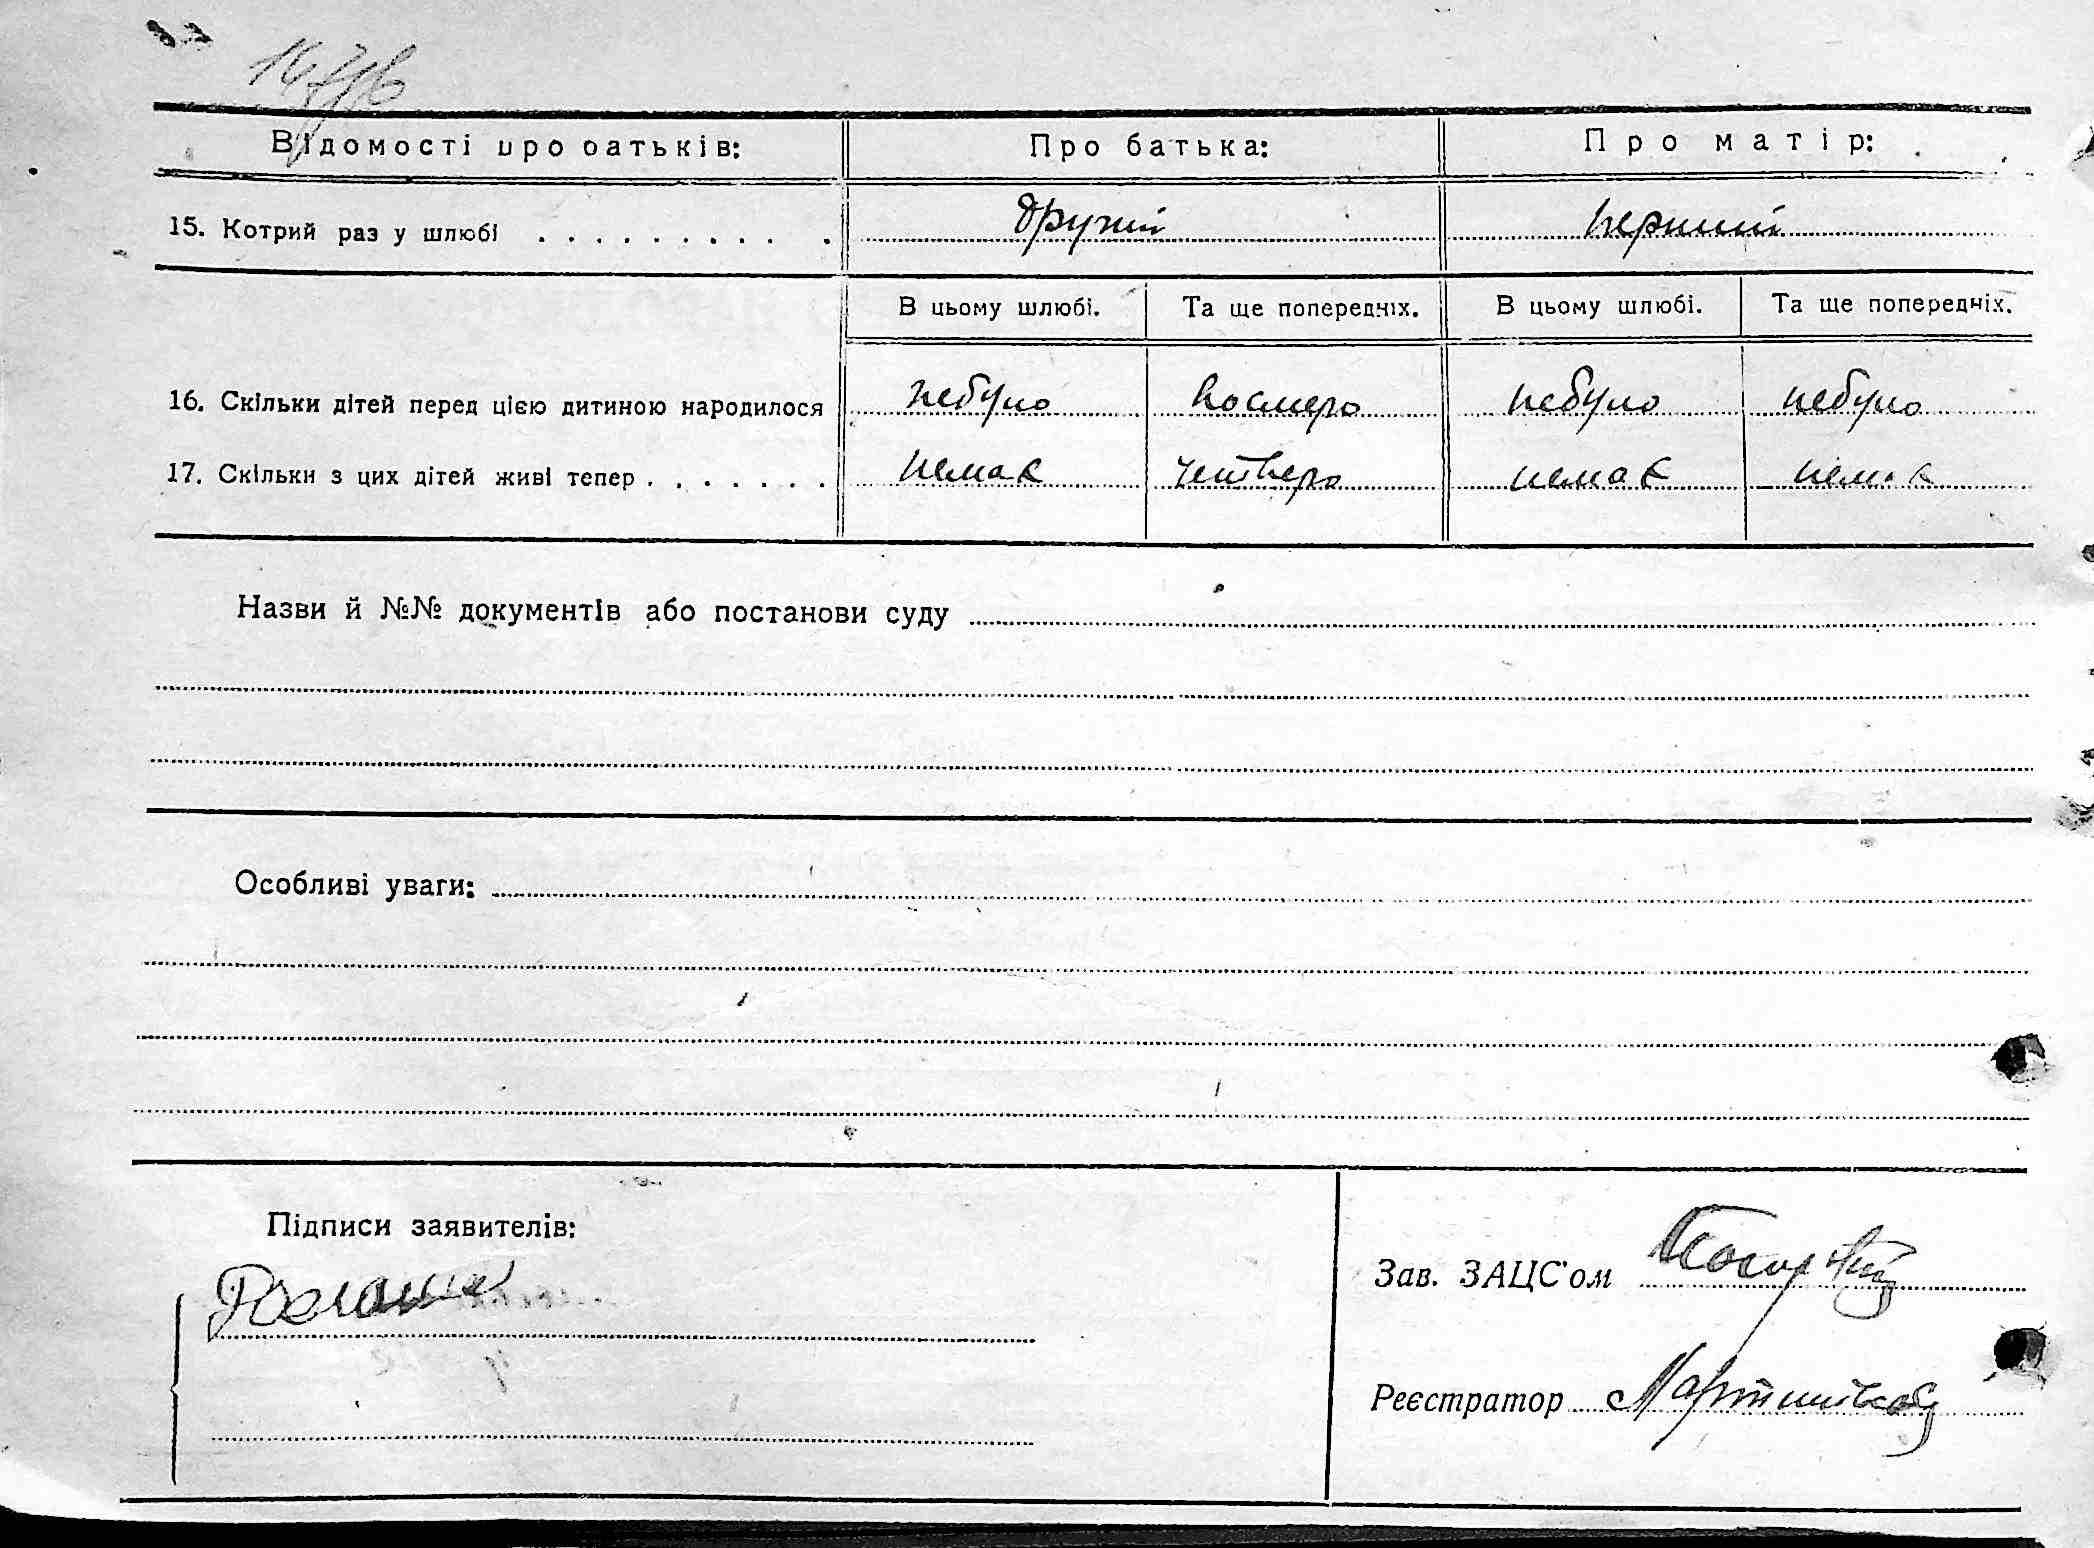 Відомості про батьків: Про батька: Про матір:
15. Котрий раз у шлюбі . . . . . . . . . . . другий перший
В цьому шлюбі. Та ще попередніх. В цьому шлюбі. Та ще попередніх.
16. Скільки дітей перед цією дитиною народилося небуло восмеро небуло небуло
17. Скільки з цих дітей живі тепер . . . . . . . немає четверо немає немає
Назви й №№ документів або постанови суду
Особливі уваги:
Підписи заявителів:
Зав. ЗАЦС'ом
Реєстратор